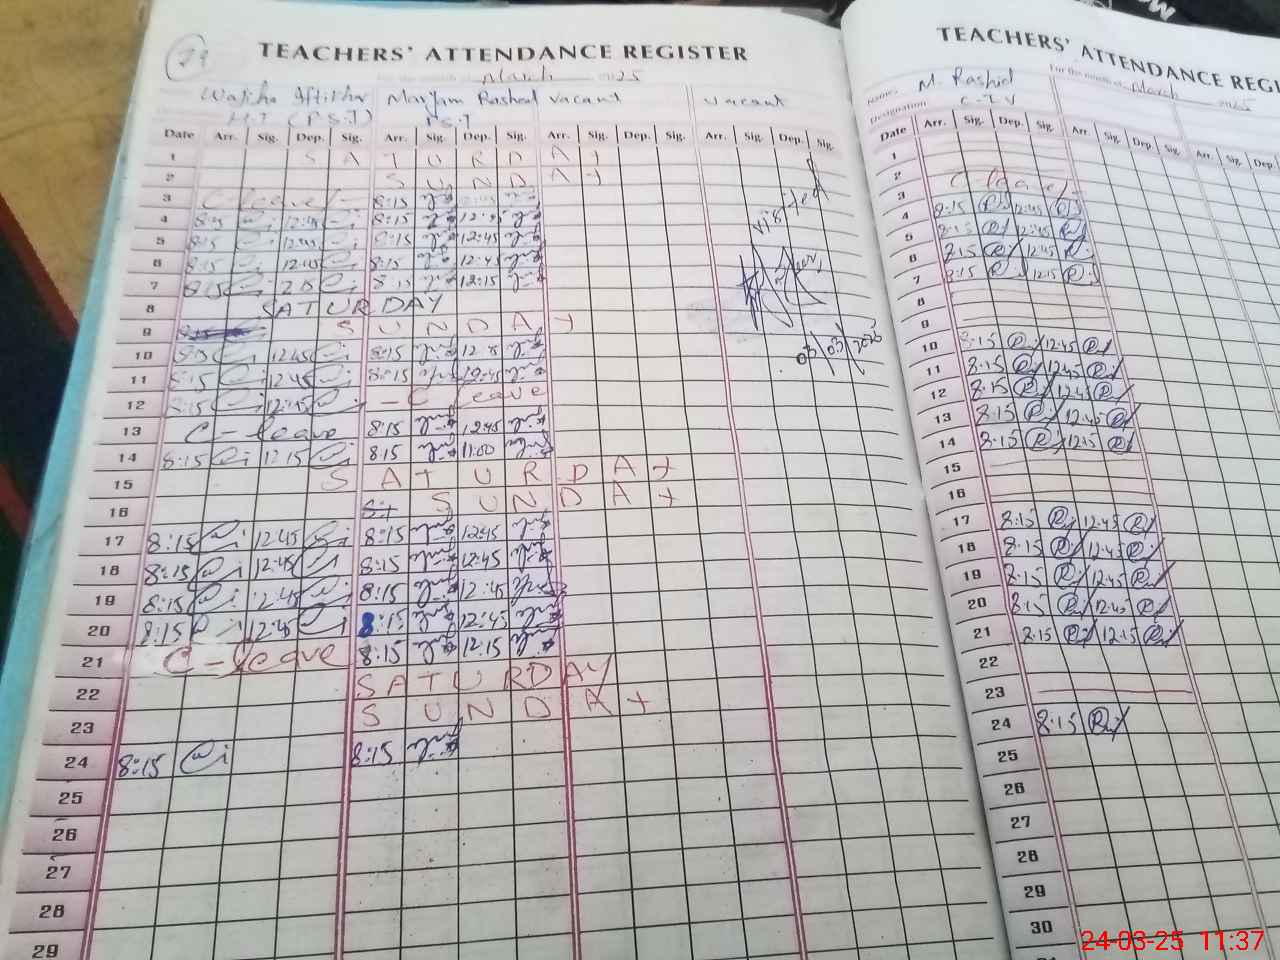 29
TEACHERS' ATTENDANCE REGISTER
For the month of March 2025
Wajiha Iftikhar Maryam Rasheed vacant vacant
H.T (P.S.T) P.S.T
Date Arr. Sig. Dep. Sig. Arr. Sig. Dep. Sig. Arr. Sig. Dep. Sig. Arr. Sig. Dep. Sig.
1 SATURDAY
2 SUNDAY
3 C-leave 8:15 12:45
4 8:15 12:45 8:15 12:45
5 8:15 12:45 8:15 12:45
6 8:15 12:45 8:15 12:45
7 8:15 12:15 8:15 12:15
8 SATURDAY
9 SUNDAY
10 8:15 12:45 8:15 12:45
11 8:15 12:45 8:15 12:45
12 8:15 12:45 - C leave
13 C-leave 8:15 12:45
14 8:15 12:15 8:15 11:00
15 SATURDAY
16 SUNDAY
17 8:15 12:45 8:15 12:45
18 8:15 12:45 8:15 12:45
19 8:15 12:45 8:15 12:45
20 8:15 12:45 8:15 12:45
21 C-leave 8:15 12:15
22 SATURDAY
23 SUNDAY
24 8:15 8:15
25
26
27
28
29
visited
03/03/2025
TEACHERS' ATTENDANCE REGI
For the month of March 2025
Name: M. Rashid
Designation C.T.V
Date Arr. Sig. Dep. Sig. Arr. Sig. Dep. Sig. Arr. Sig. Dep.
1
2
3 C leave
4 8:15 12:45
5 8:15 12:45
6 8:15 12:45
7 8:15 12:15
8
9
10 8:15 12:45
11 8:15 12:45
12 8:15 12:45
13 8:15 12:45
14 8:15 12:15
15
16
17 8:15 12:45
18 8:15 12:45
19 8:15 12:45
20 8:15 12:45
21 8:15 12:15
22
23
24 8:15
25
26
27
28
29
30
24-03-25 11:37